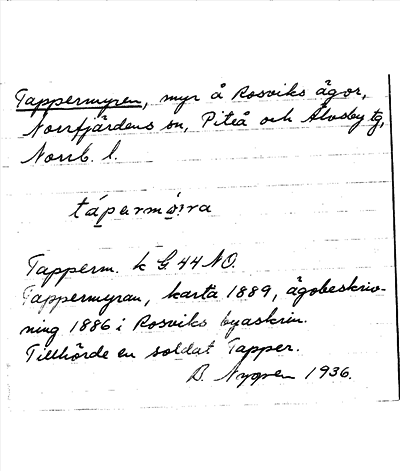 Tappermyren, myr å Rosviks ägor,
Norrfjärdens sn, Piteå och Älvsby tg,
Norrb. l.
tápermỳra
Tapperm. k G. 44 NO.
Tappermyran, karta 1889, ägobeskriv-
ning 1886 i Rosviks byaskrin.
Tillhörde en soldat Tapper.
B. Nygren 1936.